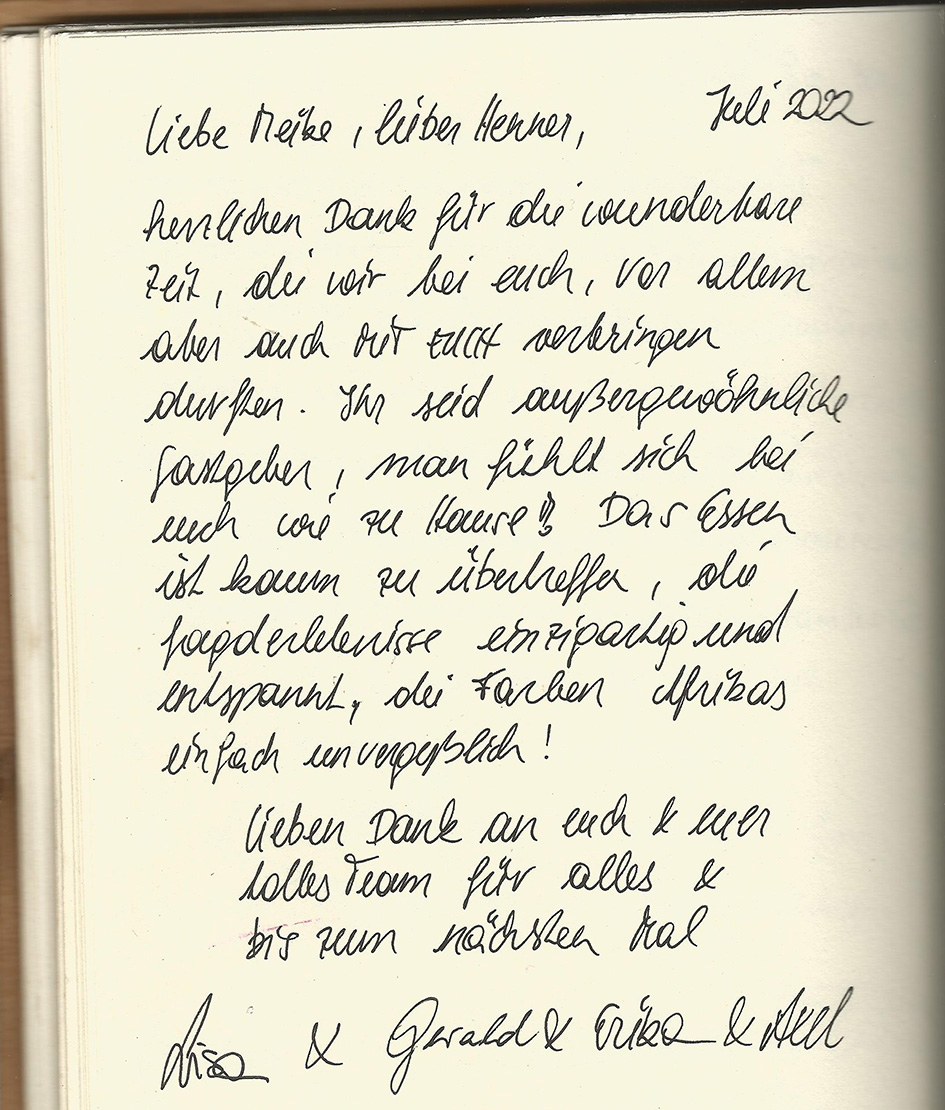 Juli 2022
Liebe Meike, lieber Henner,
herzlichen Dank für die wunderbare
Zeit, die wir bei euch, vor allem
aber auch MIT EUCH verbringen
durften. Ihr seid außergewöhnliche
Gastgeber, man fühlt sich bei
euch wie zu Hause!! Das Essen
ist kaum zu übertreffen, die
Jagderlebnisse einzigartig und
entspannt, die Farben Afrikas
einfach unvergeßlich!
Lieben Dank an euch & euer
tolles Team für alles &
bis zum nächsten Mal
Lisa & Gerald & Erika & Axel